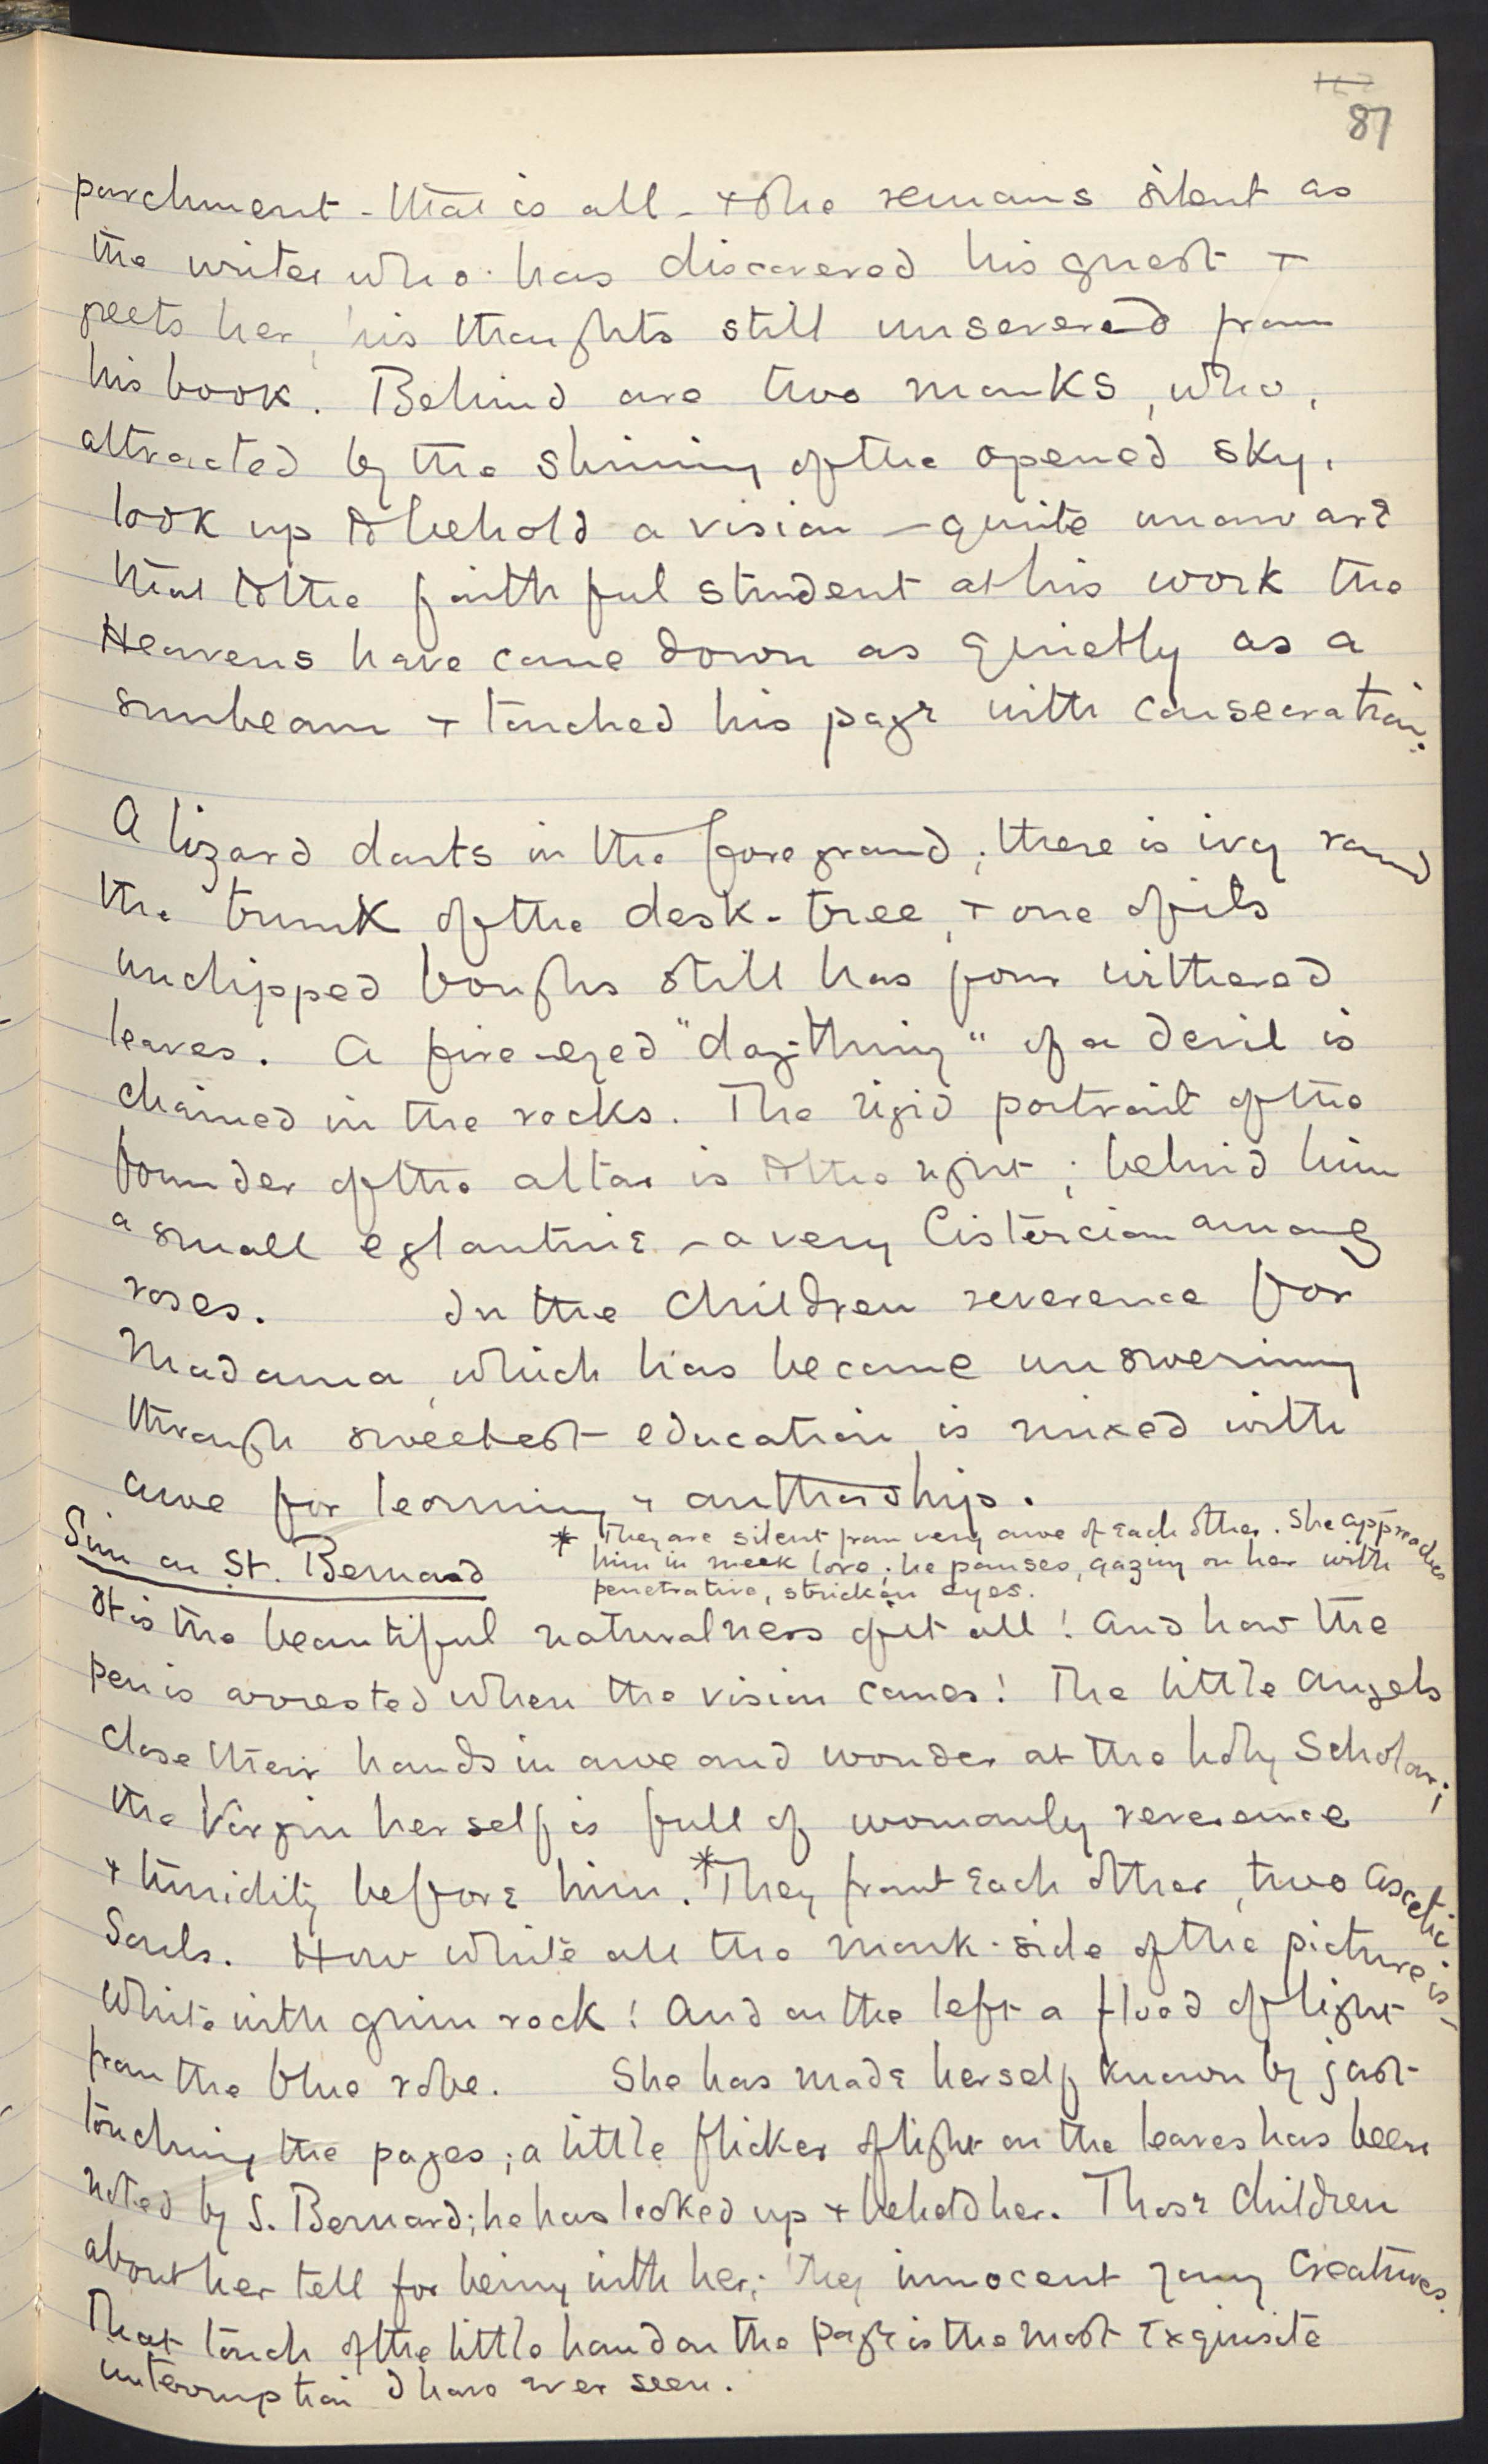 87
parchment - that is all - & she remains silent as
the writer who has discovered his guest &
greets her, his thoughts still unsevered from
his book. Behind are two monks, who,
attracted by the shining of the opened sky,
look up to behold a vision - quite unaware
that to the faithful student at his work the
Heavens have come down as quietly as a
sunbeam & touched his page with consecration.
A lizard darts in the foreground; there is ivy round
the trunk of the desk-tree, & one of its
unchipped boughs still has four withered
leaves. A fire-eyed "dog-thing" of a devil is
chained in the rocks. The rigid portrait of the
founder of the altar is to the right; behind him
a small eglantine - a very Cistercian among
roses. In the children reverence for
Madonna, which has become unswerving
through sweetest education is mixed with
awe for learning & authorship.
Sim on St. Bernard
* They are silent from very awe of each other. She approaches
him in meek love; he pauses, gazing on her with
penetrative, stricken eyes.
It is the beautiful naturalness of it all! And how the
pen is arrested when the vision comes! The little angels
close their hands in awe and wonder at the holy Scholar;
the Virgin herself is full of womanly reverence
& timidity before him. * They front each other, two ascetic
Souls. How white all the monk-side of the picture is -
white with grim rock! And on the left a flood of light
from the blue robe. She has made herself known by just
touching the pages; a little flicker of light on the leaves has been
noted by S. Bernard; he has looked up & beheld her. Those children
about her tell for being with her; they innocent young creatures.
That touch of the little hand on the page is the most exquisite
interruption I have ever seen.